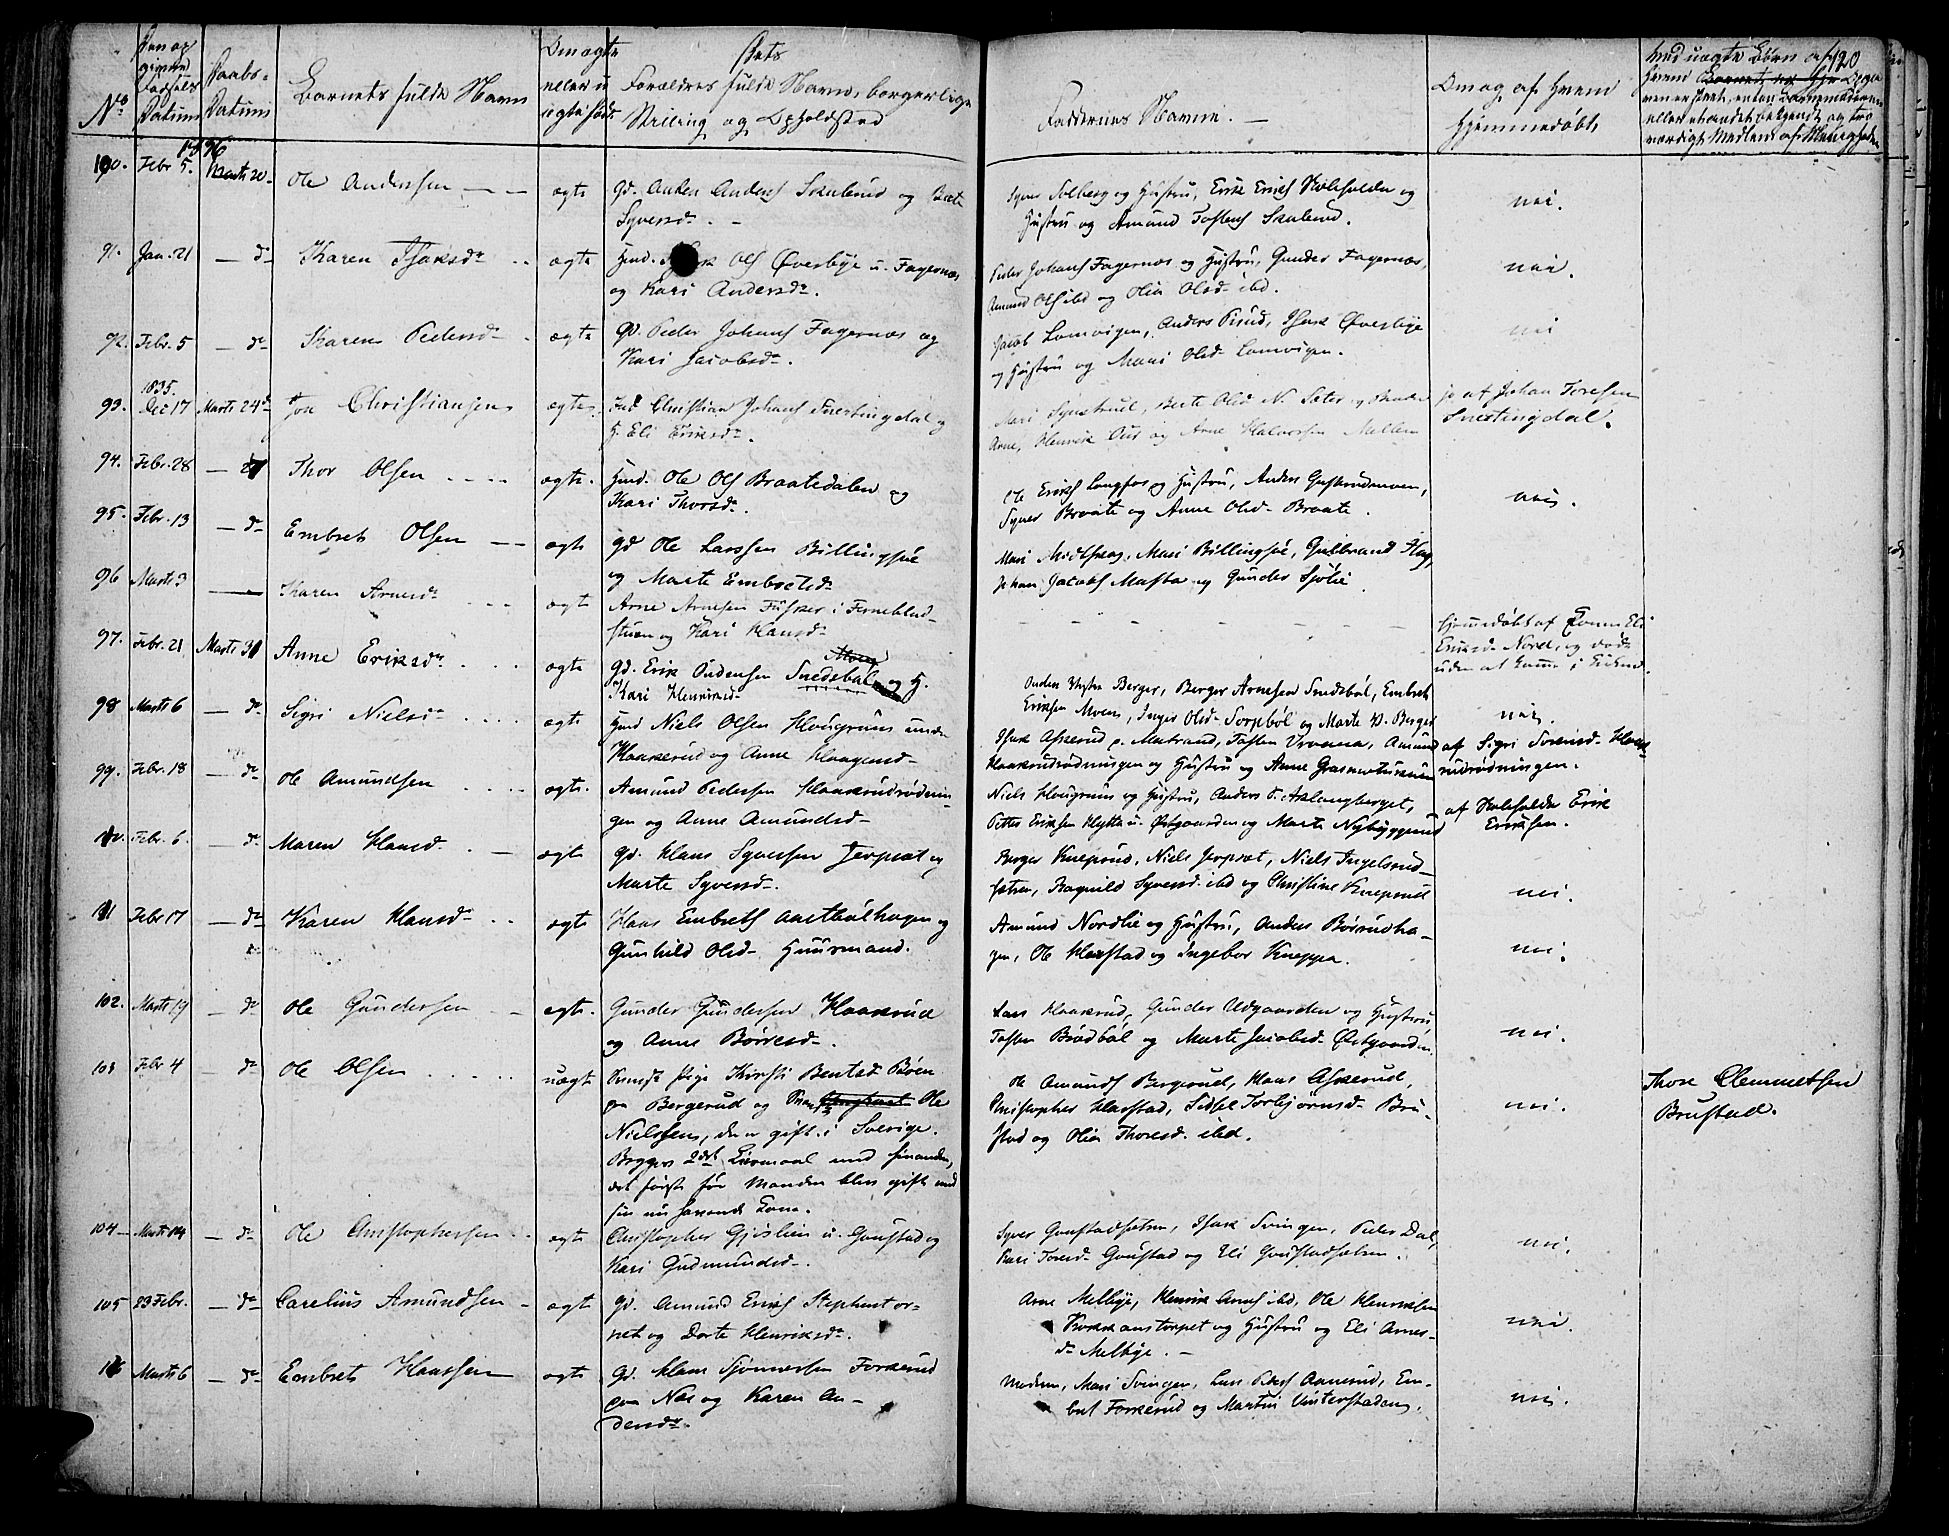 120
No
Den opgivne Fødsels Datum
Daabs-Datum
Barnets fulde Navn
Om ægte eller uægte født
Dets Forældres fulde Navn, borgerlige Stilling og Opholdsted
Faddernes Navne. —
Om og af hvem Hjemmedøbt
1836
90. Febr 5. Marts 20 Ole Andersen — — ægte Gd. Anders Anders Skulerud og Berte
Syversd. — 
Syver Solberg og Hustru, Erik Erichs Kolsholder og
Hustru og Amund Tostens Skulerud.
nei.
91. Jan. 21 — do Karen Isaksdr ægte Hmd. Isak Ols Øverbye u. Fagernæs
og Kari Andersdr.
Peder Johans Fagernæs og Hustru, Gunder Fagernæs,
Amund Ols ibd og Olia Olsd. ibd.
nei.
92. Febr. 5 — do Karen Pedersdr ægte Gd. Peder Johans Fagernæs og
Kari Jacobsdr.
Jacob Lomvigen, Anders Risud, Isak Øverbye
og Hustru og Mari Olsd. Lomvigen.
nei
93. 1835. Dec 17 Marts 24 Jon Christiansen ægte Christian Johans Snertingdal og
H. Eli Eriksdr.
Berte Olsd N. Sæter
Arne, Henrik Oud og Arne Halvorsen Mellem
ja af Johan Toresen
Snertingdal.
94. Febr. 28 — 27 Thor Olsen ægte. Hmd. Ole Ols Braatedalen og
Kari Thorsdr.
Ole Erichs Langfos og Hustru, Anders
Syver Braate og Anne Olsd. Braate.
nei.
95. Febr. 13 — do Embret Olsen — — ægte Gd Ole Larssen Billingsøe
og Marte Embretsd.
Mari Midtskog, Mari Billingsøe, Gulbrand Hag,
Johan Jacobs Masta og Gunder Sjølie.
96 Marts 3 — Karen Arnesdr ægte Arne Arnesen Fusker i Fernebled
stuen og Kari Hansdr
Hjemmedøbt af Konen Eli
Eriksd. Noret, og død
uden at komme i Kirken.
97. Febr. 21 Marts 31 Anne Eriksdr ægte Gd. Erik Oudensen Snedsbøl og H.
Kari Henriksd.
Ouden Berger, Berger Arnesen Snedsbøl, Embret
Eriksen Moen, Inger Olsd. Torpbøl og Marte V. Berger
nei.
98 Marts 6 — do Sigri Nielsdr ægte Hmd Niels Olsen Hougruus under
Haakerud og Anne Haagensd.
Isak Askerud p. Matrand, Tosten Vranna, Amund
Haakrudrødningen og Hustru og Anne Grasmotuskin
af Sigri Svensd. Haak-
rudrødningen.
99. Febr. 18 — do Ole Amundsen ægte. Amund Pedersen Haakrudrødnin-
gen og Anne Amundsd.
Niels Hougruus og Hustru, Anders Aslangberget,
Petter Eriksen Hytta u. Østgaarden og Marte Nybyggerud
af Kolsholder Erik
Eriksen.
100. Febr. 6. — do Maren Hansd. — ægte Gd. Hans Syversen Jerpset og
Marte Syversd.
Berger Kneprud, Niels Jerpset, Niels Ingelsrud-
sætren, Ragnild Syversd. ibd og Christine Kneprud
nei.
101 Febr 17 — do Karen Hansd. ægte Hans Embrets Aastbølhagen og
Gunhild Olsd. Huusmand.
Amund Nordlie og Hustru, Anders Børrudha-
gen, Ole Harstad og Ingebor Kneppa.
nei.
102. Marts 19 — do Ole Gundersen — ægte. Gunder Gundersen Haakrud
og Anne Børresd.
Lars Haakrud, Gunder Udgaarden og Hustru
Tosten Brødbøl og Marte Jacobsd. Østgaarden.
nei.
103 Febr 4 — do Ole Olsen uægte Svensk Pige Kirsti Bentsd. Bøen
paa Bergerud og Ole
Nielssen, der er gift i Sverige.
Begges 2det Leiermaal med hinanden,
det første før Manden blev gift med
sin nu havende Kone.
Ole Amunds Bergerud, Hans Askerud,
Christopher Harstad, Sidsel Torbjørnsd. Bru-
stad og Olia Thoresd. ibd.
nei.
Thore Clemmetsen
Brustad.
104 — Marts 14 — do Ole Christophersen ægte Christopher Gjeslien u. Gaustad og
Kari Gudmundsd.
Syver Gaustadsætren, Isak Svingen, Peder Dal,
Kari Torsd. Gaustad og Eli Gaustadsætren.
nei.
105 23 Febr. — do Carelius Amundsen — ægte Gd. Amund Erichs Stephenstor-
pet og Dorte Henriksdr.
Arne Melbye, Henrik Arnes ibd, Ole Henriksen
Kokkanstorpet og Hustru og Eli Arnes-
dr Melbye. —
nei.
106 Marts 6 — do Embret Hanssen ægte Gd. Hans Sjønnersen Forkerud
paa Næs og Karen An-
dersdr.
Moderen, Mari Svingen, Lars Peders Aanerud, Em-
bret Forkerud og Martin Vinterstadeng.
nei.